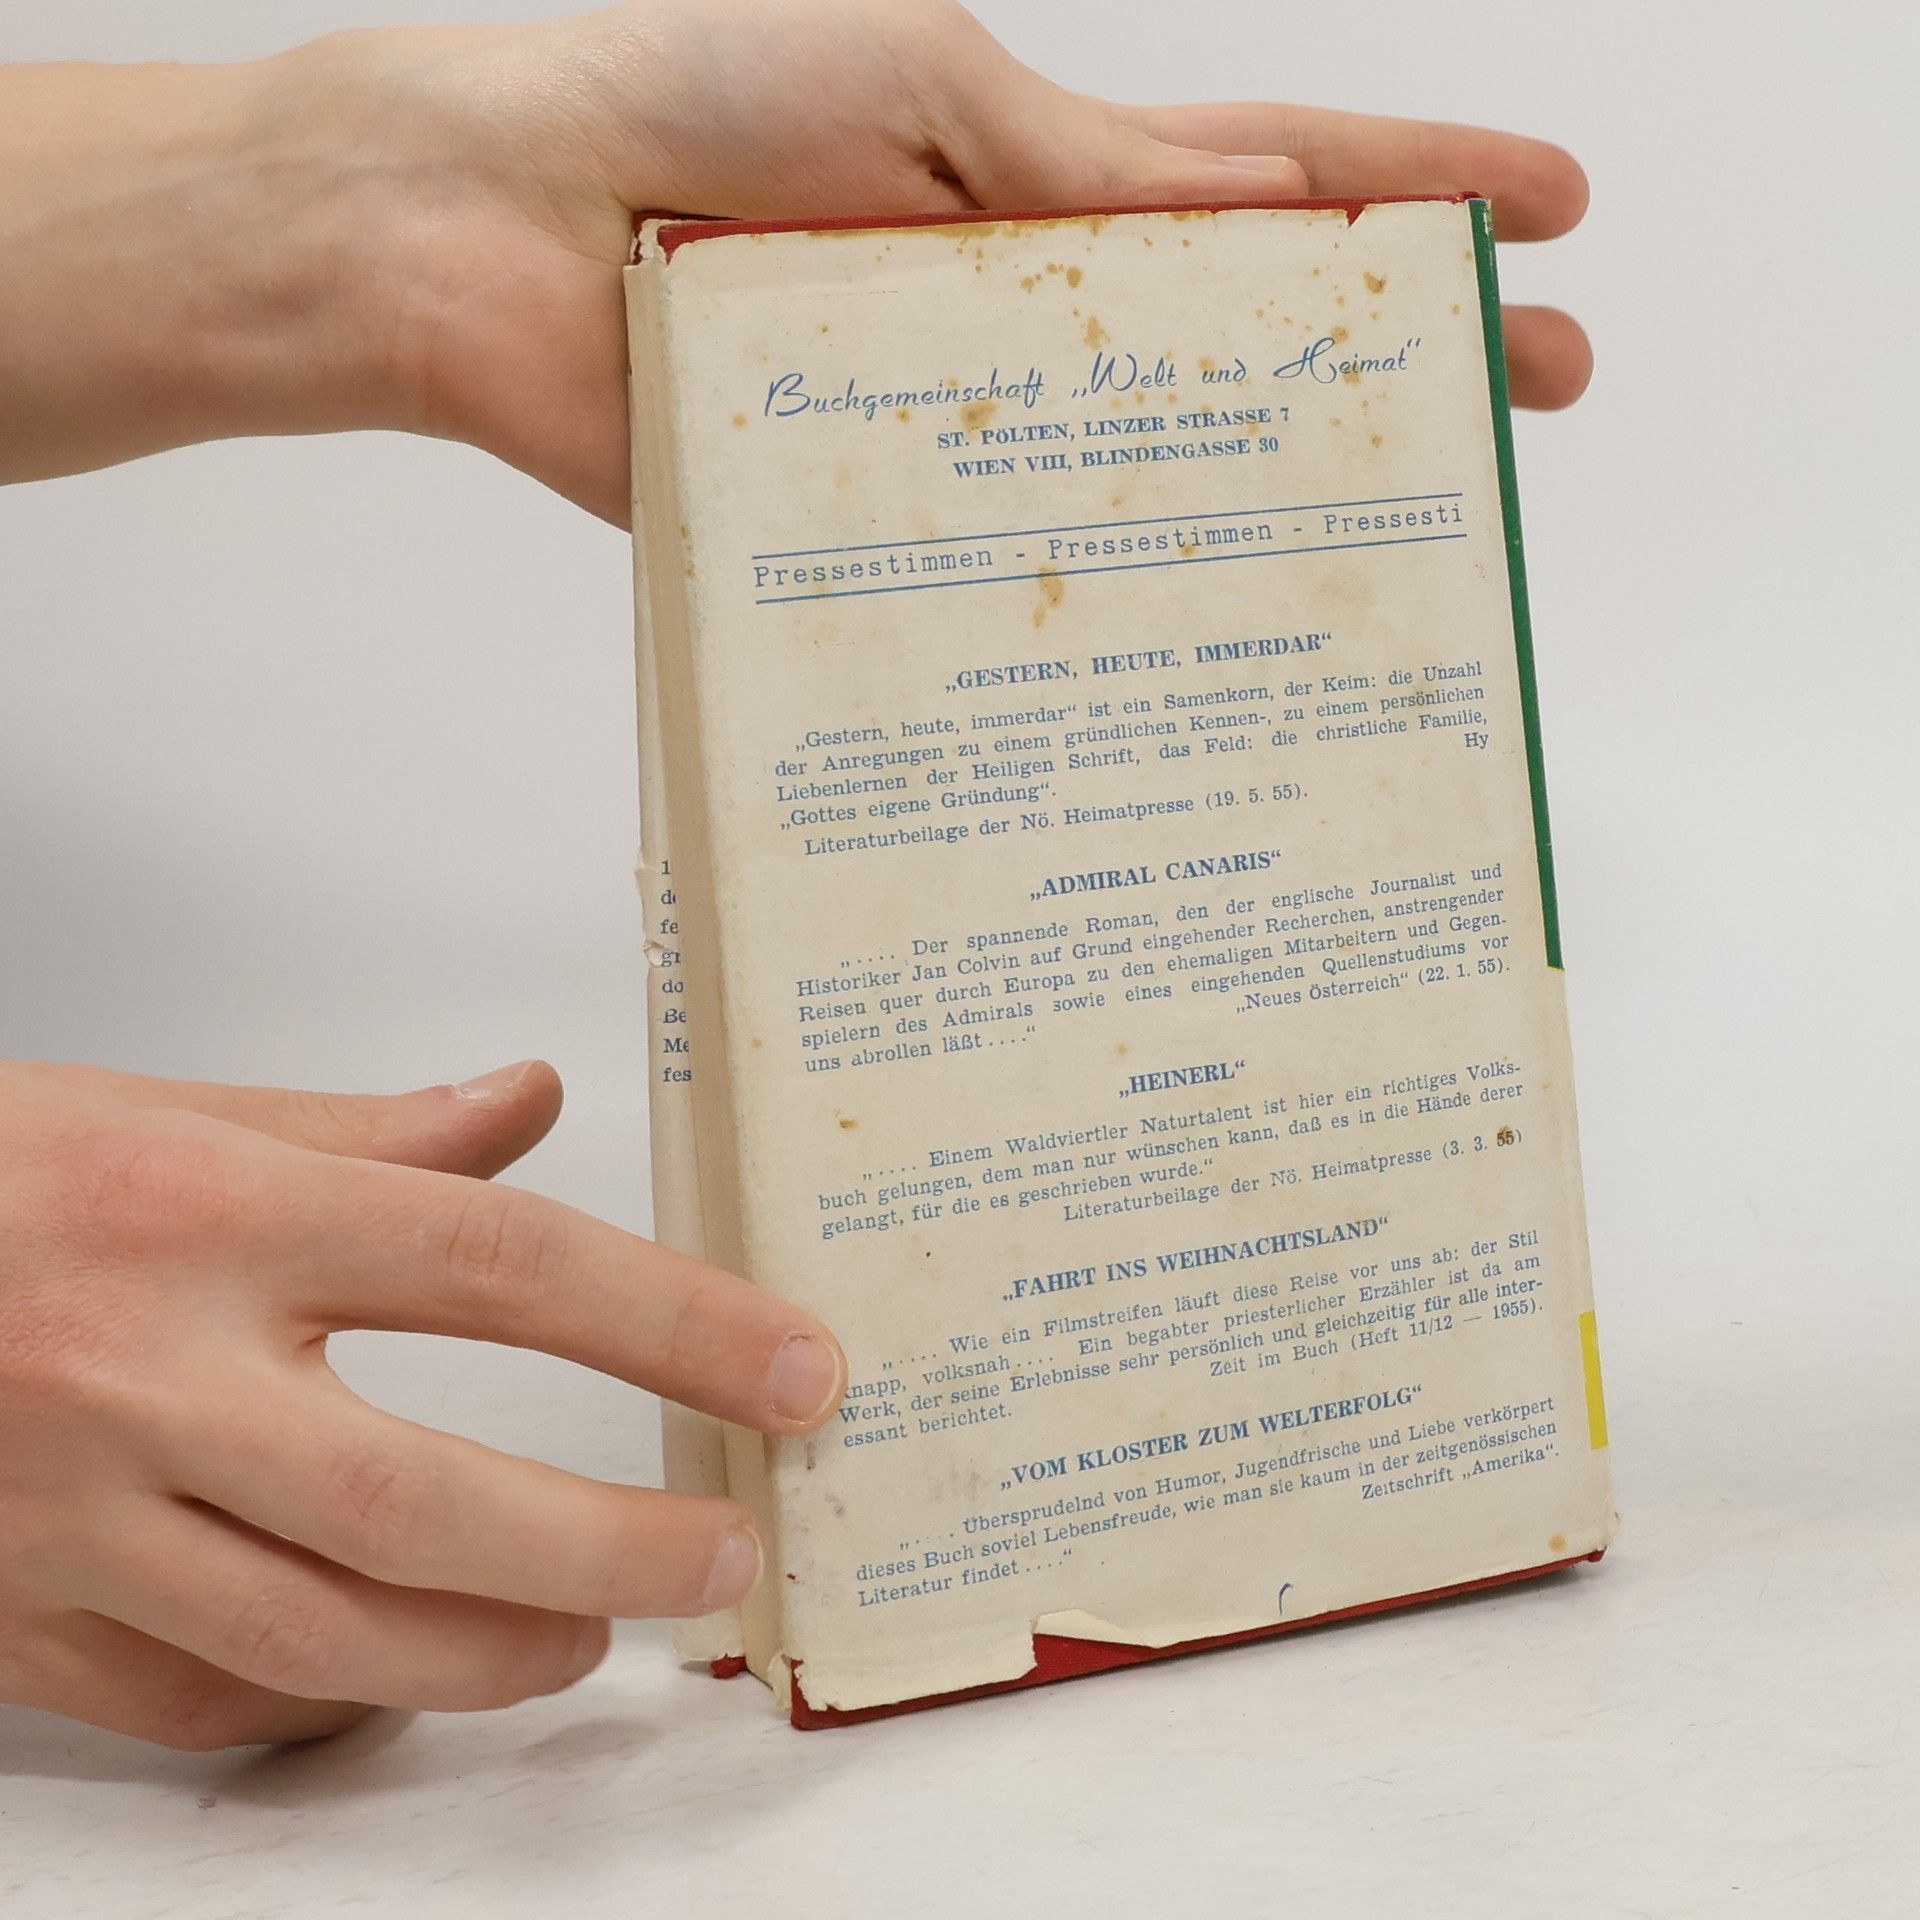 Buchgemeinschaft „Welt und Heimat“
ST. PÖLTEN, LINZER STRASSE 7
WIEN VIII, BLINDENGASSE 30
Pressestimmen - Pressestimmen - Pressesti
„GESTERN, HEUTE, IMMERDAR“
„Gestern, heute, immerdar“ ist ein Samenkorn, der Keim: die Unzahl
der Anregungen zu einem gründlichen Kennen-, zu einem persönlichen
Liebenlernen der Heiligen Schrift, das Feld: die christliche Familie,
„Gottes eigene Gründung“. Hy
Literaturbeilage der Nö. Heimatpresse (19. 5. 55).
„ADMIRAL CANARIS“
„.... Der spannende Roman, den der englische Journalist und
Historiker Jan Colvin auf Grund eingehender Recherchen, anstrengender
Reisen quer durch Europa zu den ehemaligen Mitarbeitern und Gegen-
spielern des Admirals sowie eines eingehenden Quellenstudiums vor
uns abrollen läßt ....“ „Neues Österreich“ (22. 1. 55).
„HEINERL“
„.... Einem Waldviertler Naturtalent ist hier ein richtiges Volks-
buch gelungen, dem man nur wünschen kann, daß es in die Hände derer
gelangt, für die es geschrieben wurde.“
Literaturbeilage der Nö. Heimatpresse (3. 3. 55)
„FAHRT INS WEIHNACHTSLAND“
„.... Wie ein Filmstreifen läuft diese Reise vor uns ab: der Stil
knapp, volksnah .... Ein begabter priesterlicher Erzähler ist da am
Werk, der seine Erlebnisse sehr persönlich und gleichzeitig für alle inter-
essant berichtet. Zeit im Buch (Heft 11/12 — 1955).
„VOM KLOSTER ZUM WELTERFOLG“
„.... Übersprudelnd von Humor, Jugendfrische und Liebe verkörpert
dieses Buch soviel Lebensfreude, wie man sie kaum in der zeitgenössischen
Literatur findet ....“ Zeitschrift „Amerika“.